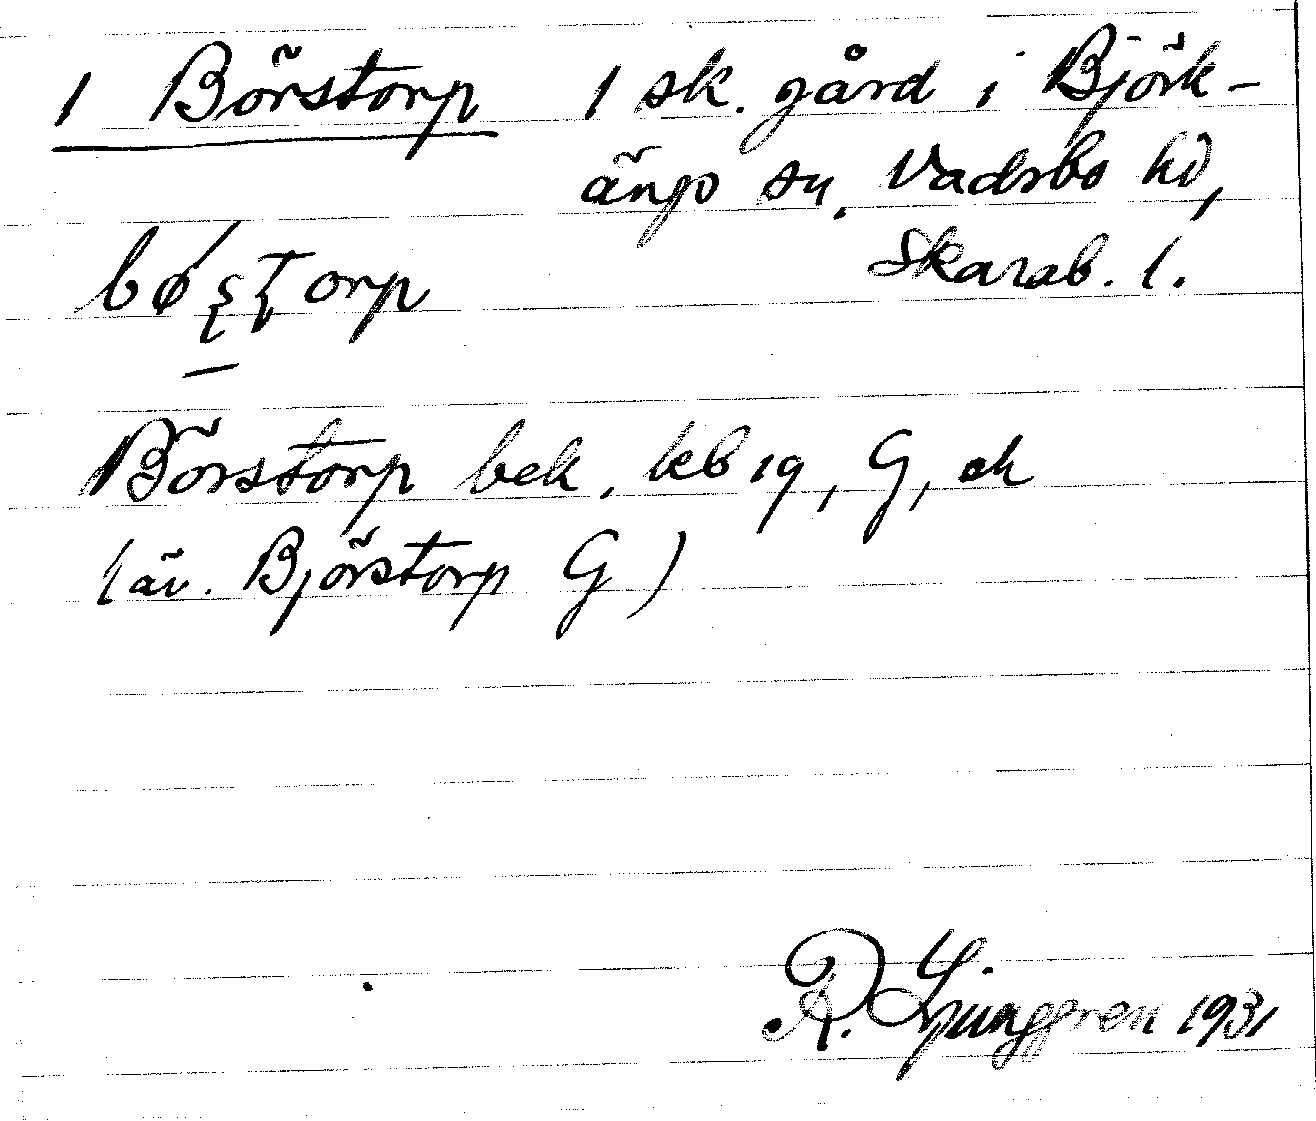 1 Börstorp 1 sk. gård i Björk-
ängs sn, Vadsbo hd,
Skarab. l.
bøștorp
Börstorp bek, kb 19, G, ek
(äv. Björstorp G)
R. Ljunggren 1931